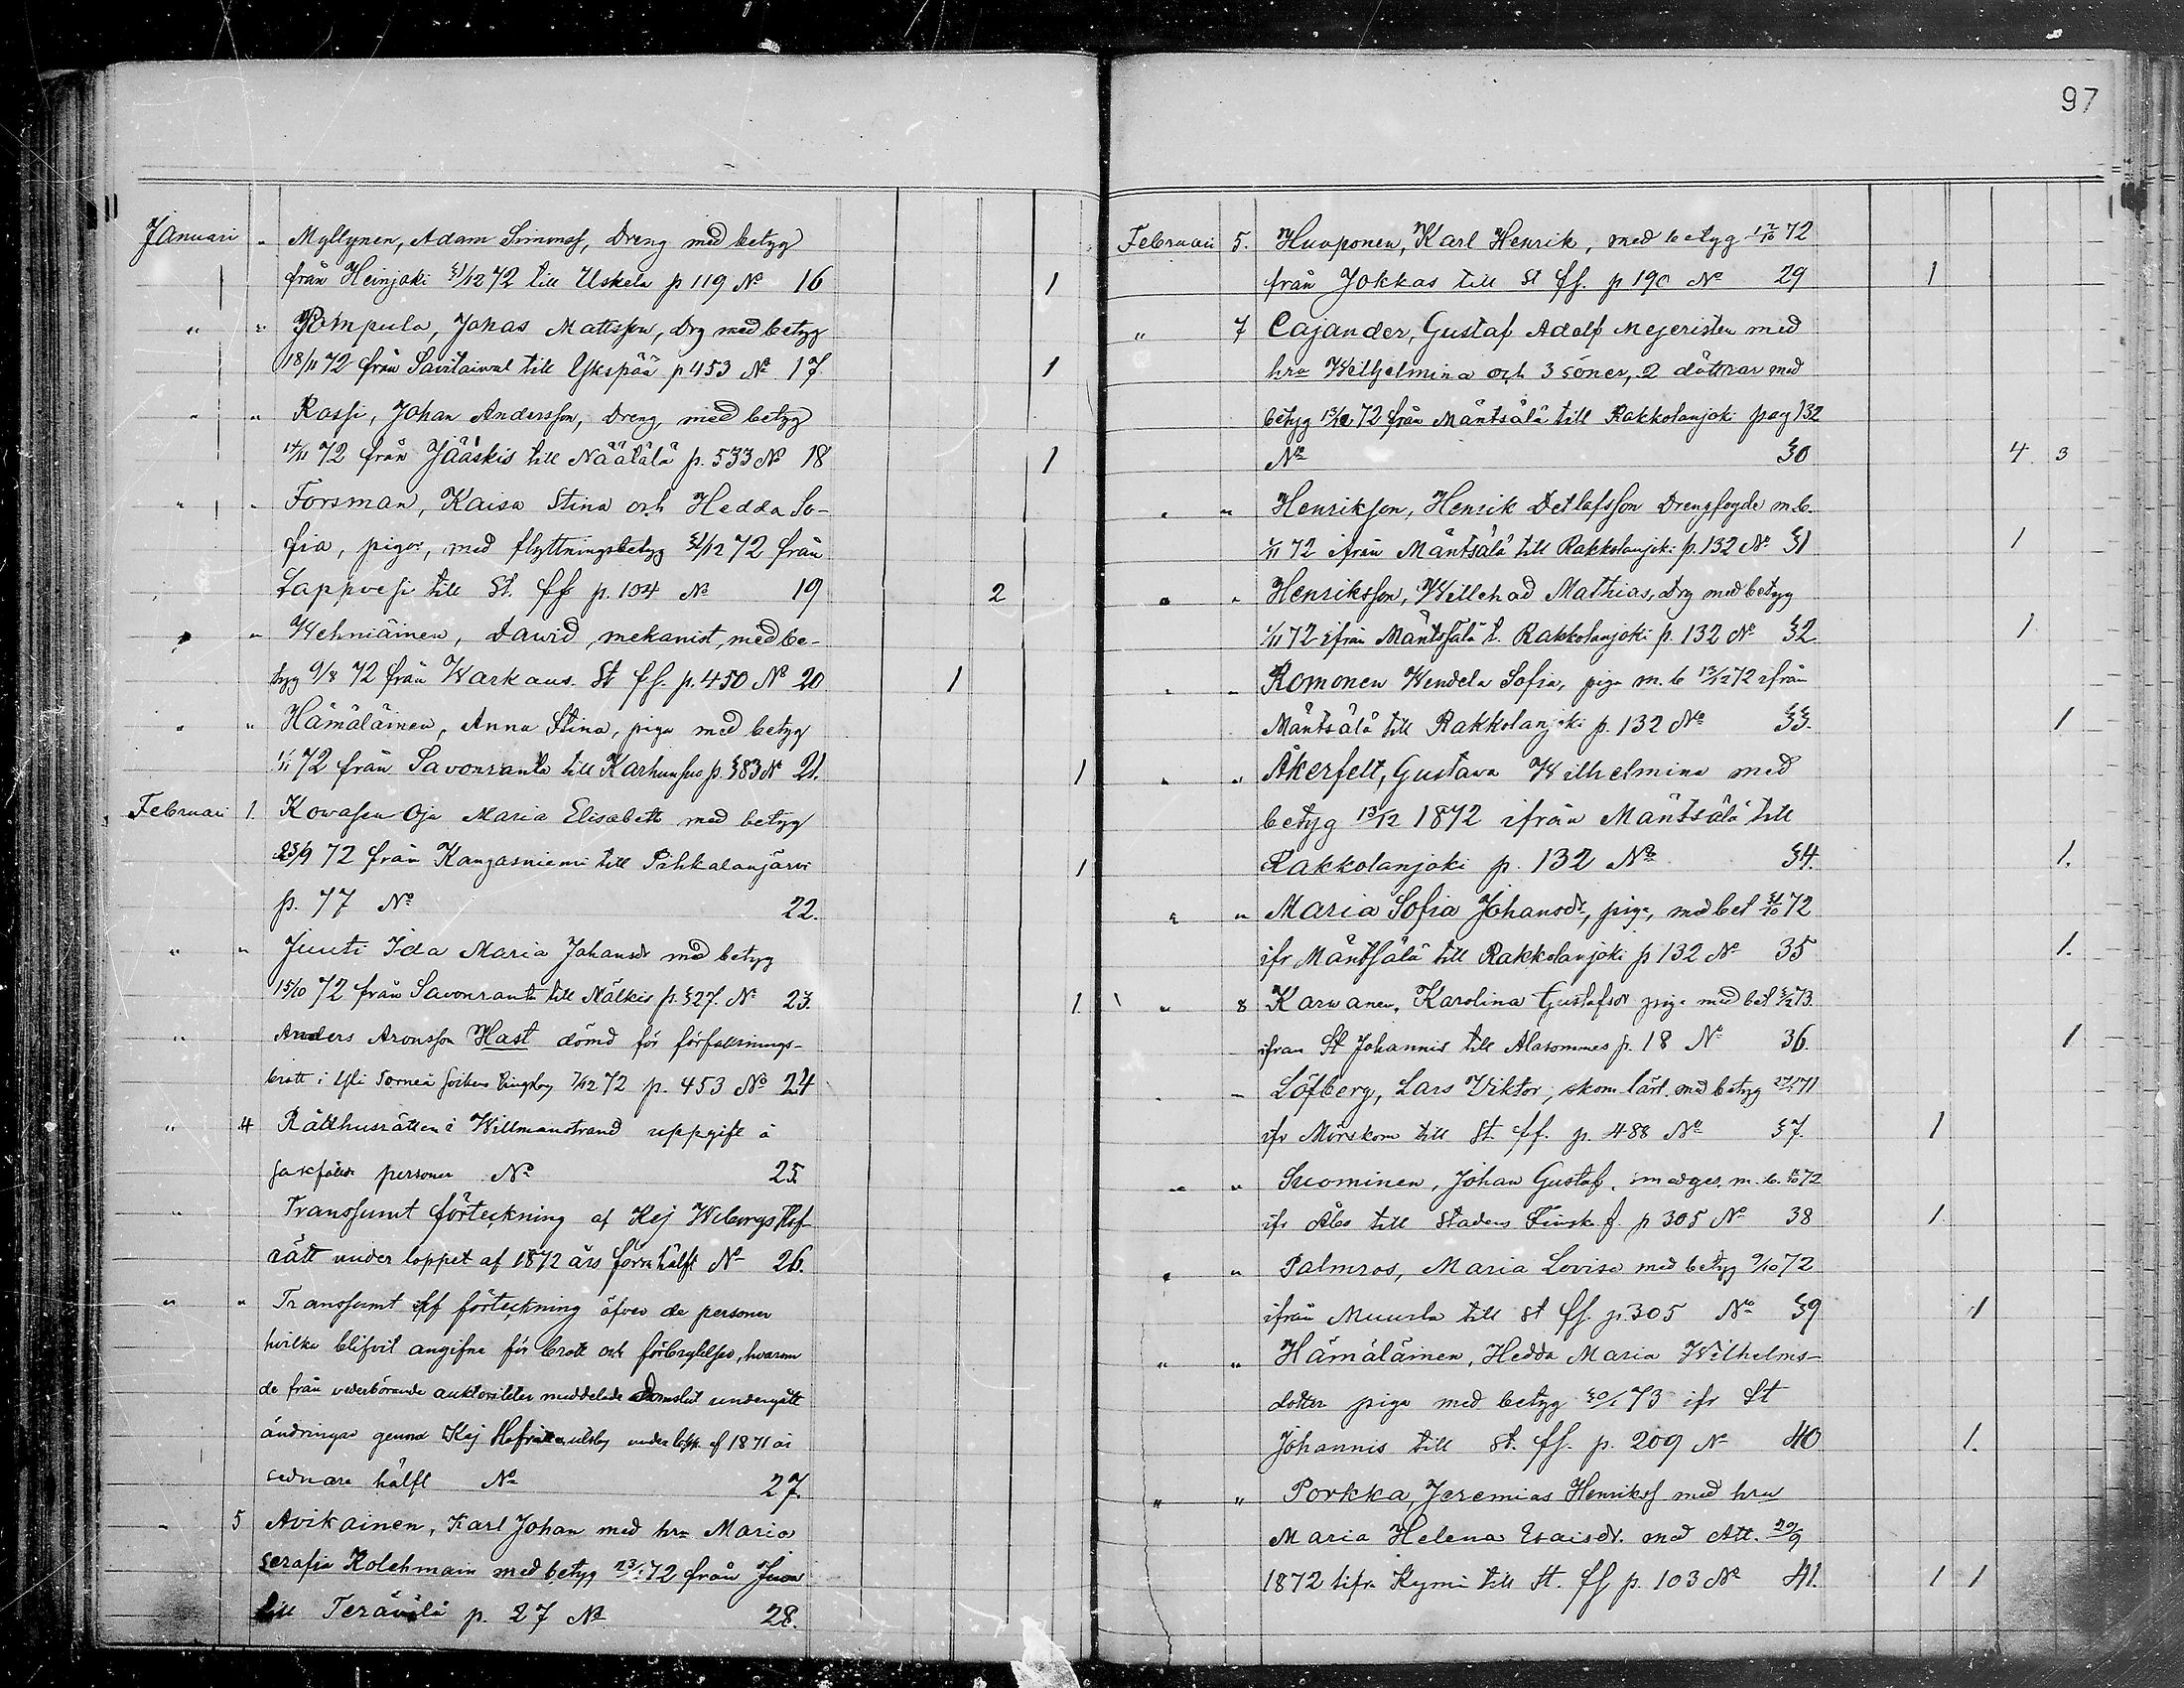 97
Januari " Myllynen, Adam Simonss, Dreng med betyg
från Heinjoki 31/12 72 till Uskela p 119 No 16 1
" " Pömpula, Johas Mattsson, Drg med betyg
18/11 72 från Savitaival till Ykspää p 453 No 17 1
" " Rassi, Johan Andersson, Dreng, med betyg
14/11 72 från Jääskis till Näätälä p. 533 No 18 1
" " Forsman, Kaisa Stina och Hedda So-
fia, pigor, med flyttningsbetyg 31/12 72 från
Lappvesi till St. ff p. 104 No 19 2
" " Wehniäinen, David, mekanist, med be-
tyg 9/8 72 från Warkaus. St ff. p. 450 No 20 1
" " Hämäläinen, Anna Stina, piga med betyg
1/11 72 från Savonranta till Karhusjus p. 383 No 21. 1
Februari 1. Kowasen Oja Maria Elisabeth med betyg
23/9 72 från Kangasniemi till Pihkalanjärvi 1
p. 77 No 22.
" " Juuti Ida Maria Johansdr med betyg
15/10 72 från Savonranta till Mälkis p. 327. No 23. 1.
" Anders Aronsson Hast dömd för förfalsknings-
brott i Yli Torneå Sockens Tingslag 7/12 72 p. 453 No 24
" 4 Rådhusrätten i Willmanstrand uppgift å
sakfälda personer No 25
" Transsumt förteckning af Kej Wiborgs Hof-
rätt under loppet af 1872 års förra hälft No 26.
" " Transsumt af förteckning öfver de personer
hvilka blifvit angifna för brott och förbrytelser, hvarom
de från vederbörande auktoriteter meddelade Domslut undergått
ändringar genom Kej Hofrättens utslag under lopp. af 1871 års
sednare hälft No 27.
" 5 Avikainen, Karl Johan med hru Maria
Serafia Kolehmain med betyg 23/1 72 från
till Terävälä p. 27 No 28.
Februari 5. Huoponen, Karl Henrik, med betyg 12/10 72
från Jokkas till St ff. p 190 No 29 1
" 7 Cajander, Gustaf Adolf Mejeristen med
hru Wilhelmina och 3 söner, 2 döttrar med
betyg 13/12 72 från Mäntsälä till Rakkolanjoki pag 132
No 30 4 3
" " Henriksson, Henrik Detlafsson Drengfogde m.b.
1/11 72 ifrån Mäntsälä till Rakkolanjoki p. 132 No 31 1
" " Henriksson, Willehad Mathias, Drg med betyg
1/11 72 ifrån Mäntsälä t. Rakkolanjoki p. 132 No 32 1
" " Romonen Wendela Sofia, piga m. b 13/12 72 ifrån
Mäntsälä till Rakkolanjoki p. 132 No 33. 1
" " Åkerfelt, Gustava Wilhelmina med
betyg 13/12 1872 ifrån Mäntsälä till
Rakkolanjoki p. 132 No 34. 1.
" " Maria Sofia Johansdr, piga, med bet 31/10 72
ifr Mäntsälä till Rakkolanjoki p 132 No 35 1.
" 8 Karvanen, Karolina Gustafsdr piga med bet 3/2 73
ifrån St Johannis till Alasommes p. 18 No 36. 1
" " Löfberg, Lars Viktor, skom. lärl. med betyg 71
ifr Mörskom till St. ff. p. 488 No 37. 1
" " Suominen, Johan Gustaf, m. b. 72
ifr Åbo till Stadens Finska f. p 305 No 38 1
" " Palmros, Maria Lovisa med betyg 9/10 72
ifrån Muurla till St ff. p. 305 No 39 1
" " Hämäläinen, Hedda Maria Wilhelms-
dotter piga med betyg 30/1 73 ifr St
Johannis till St. ff. p. 209 No 40 1.
" " Porkka, Jeremias Henrikss med hru
Maria Helena Esaisdr. med Att. 20/9
1872 ifr Kymi till St. ff p. 103 No 41. 1 1